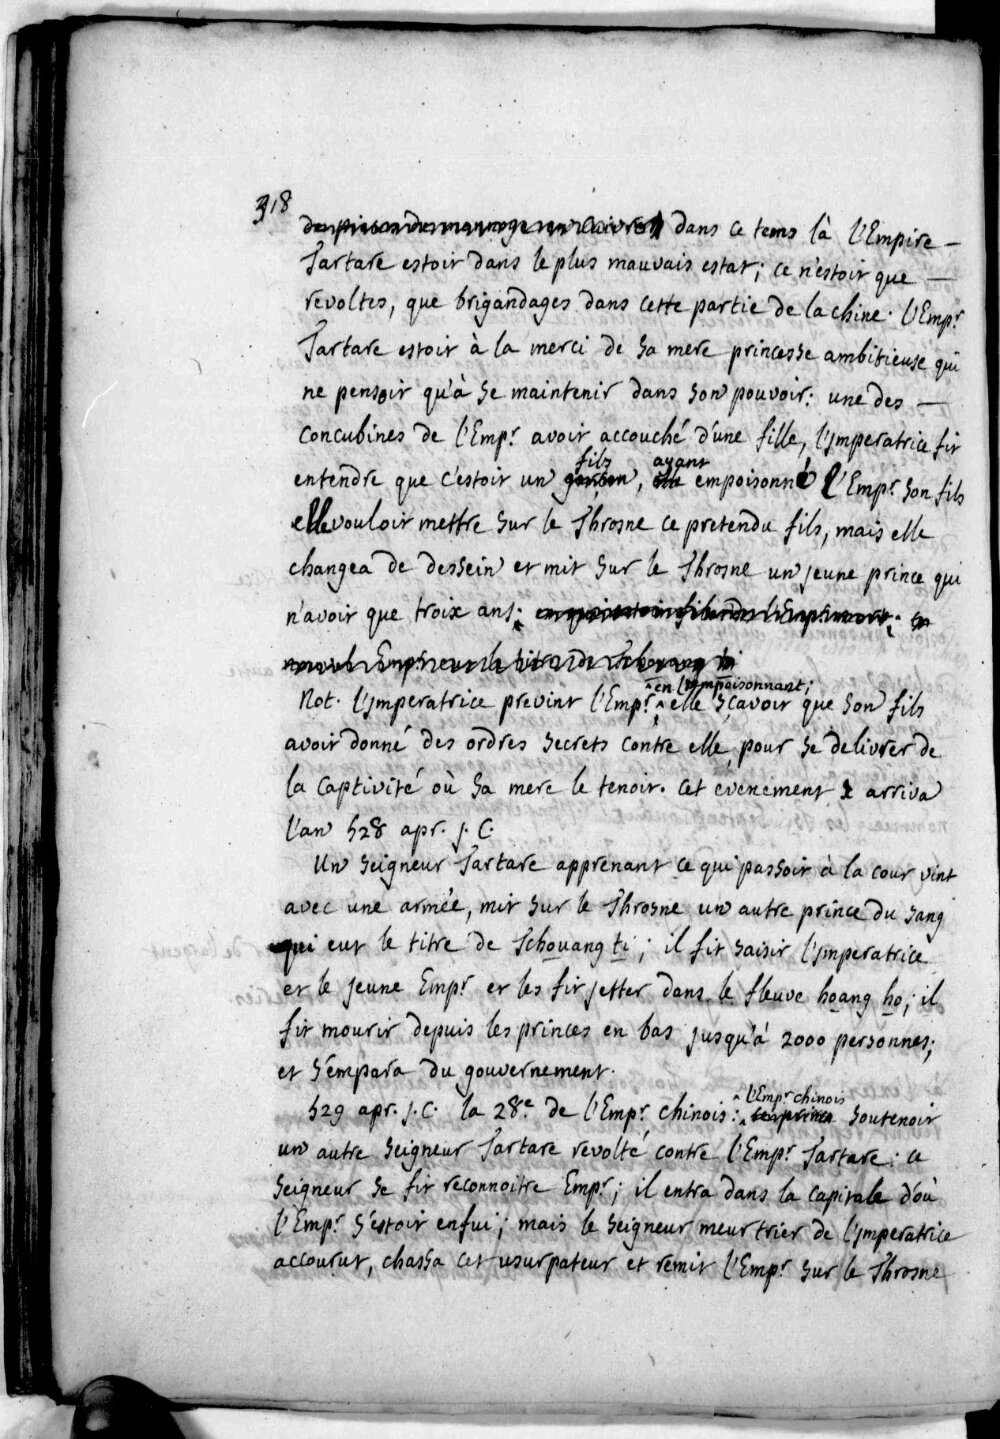 318
dans ce tems là l'Empire —
Tartare estoit dans le plus mauvais estat; ce n'estoit que —
revoltes, que brigandages dans cette partie de la chine. l'Empr
Tartare estoit à la merci de sa mere princesse ambitieuse qui
ne pensoit qu'à se maintenir dans son pouvoir: une des —
concubines de l'Empr. avoit accouché d'une fille, l'jmperatrice fit
fils ayant
entendre que c'estoit un garson, elle empoisonné l'Empr. son fils
elle vouloit mettre sur le Throsne ce pretendu fils, mais elle
changea de dessein et mit sur le Throsne un jeune prince qui
n'avoit que troix ans.
en l'empoisonnant;
Not. l'jmperatrice prevint l'Empr. ^ elle sçavoit que son fils
avoit donné des ordres secrets contre elle, pour se delivrer de
la captivité où sa mere le tenoit. cet evenement arriva
l'an 528 apr. j. C.
Un seigneur Tartare apprenant ce qui passoit à la cour vint
avec une armée, mit sur le Throsne un autre prince du sang
qui eut le titre de Tchouang ti; il fit saisir l'jmperatrice
et le jeune Empr. et les fit jetter dans le fleuve hoang ho; il
fit mourir depuis les princes en bas jusqu'à 2000 personnes;
et s'empara du gouvernement.
^ l'Empr. chinois
529 apr. j. C. la 28e de l'Empr. chinois: ^ soutenoit
un autre seigneur Tartare revolté contre l'Empr. Tartare: ce
seigneur se fit reconnoitre Empr.; il entra dans la capitale d'où
l'Empr. s'estoit enfui; mais le seigneur meurtrier de l'jmperatrice
accourut, chassa cet usurpateur et remit l'Empr. sur le Throsne